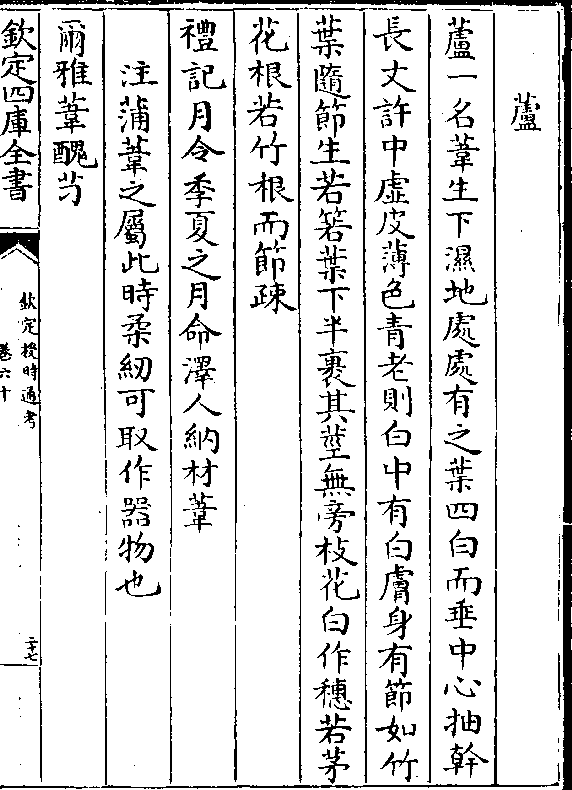 蘆
蘆一名葦生下濕地處處有之葉四向而垂中心抽幹
長丈許中虛皮薄色青老則白中有白膚身有節如竹
葉隨節生若箬葉下半裹其莖無旁枝花白作穗若茅
花根若竹根而節疎
禮記月令季夏之月命澤人納材葦
注蒲葦之屬此時柔紉可取作器物也
爾雅葦醜芀
欽定四庫全書
欽定授時通考
卷六十
二十七